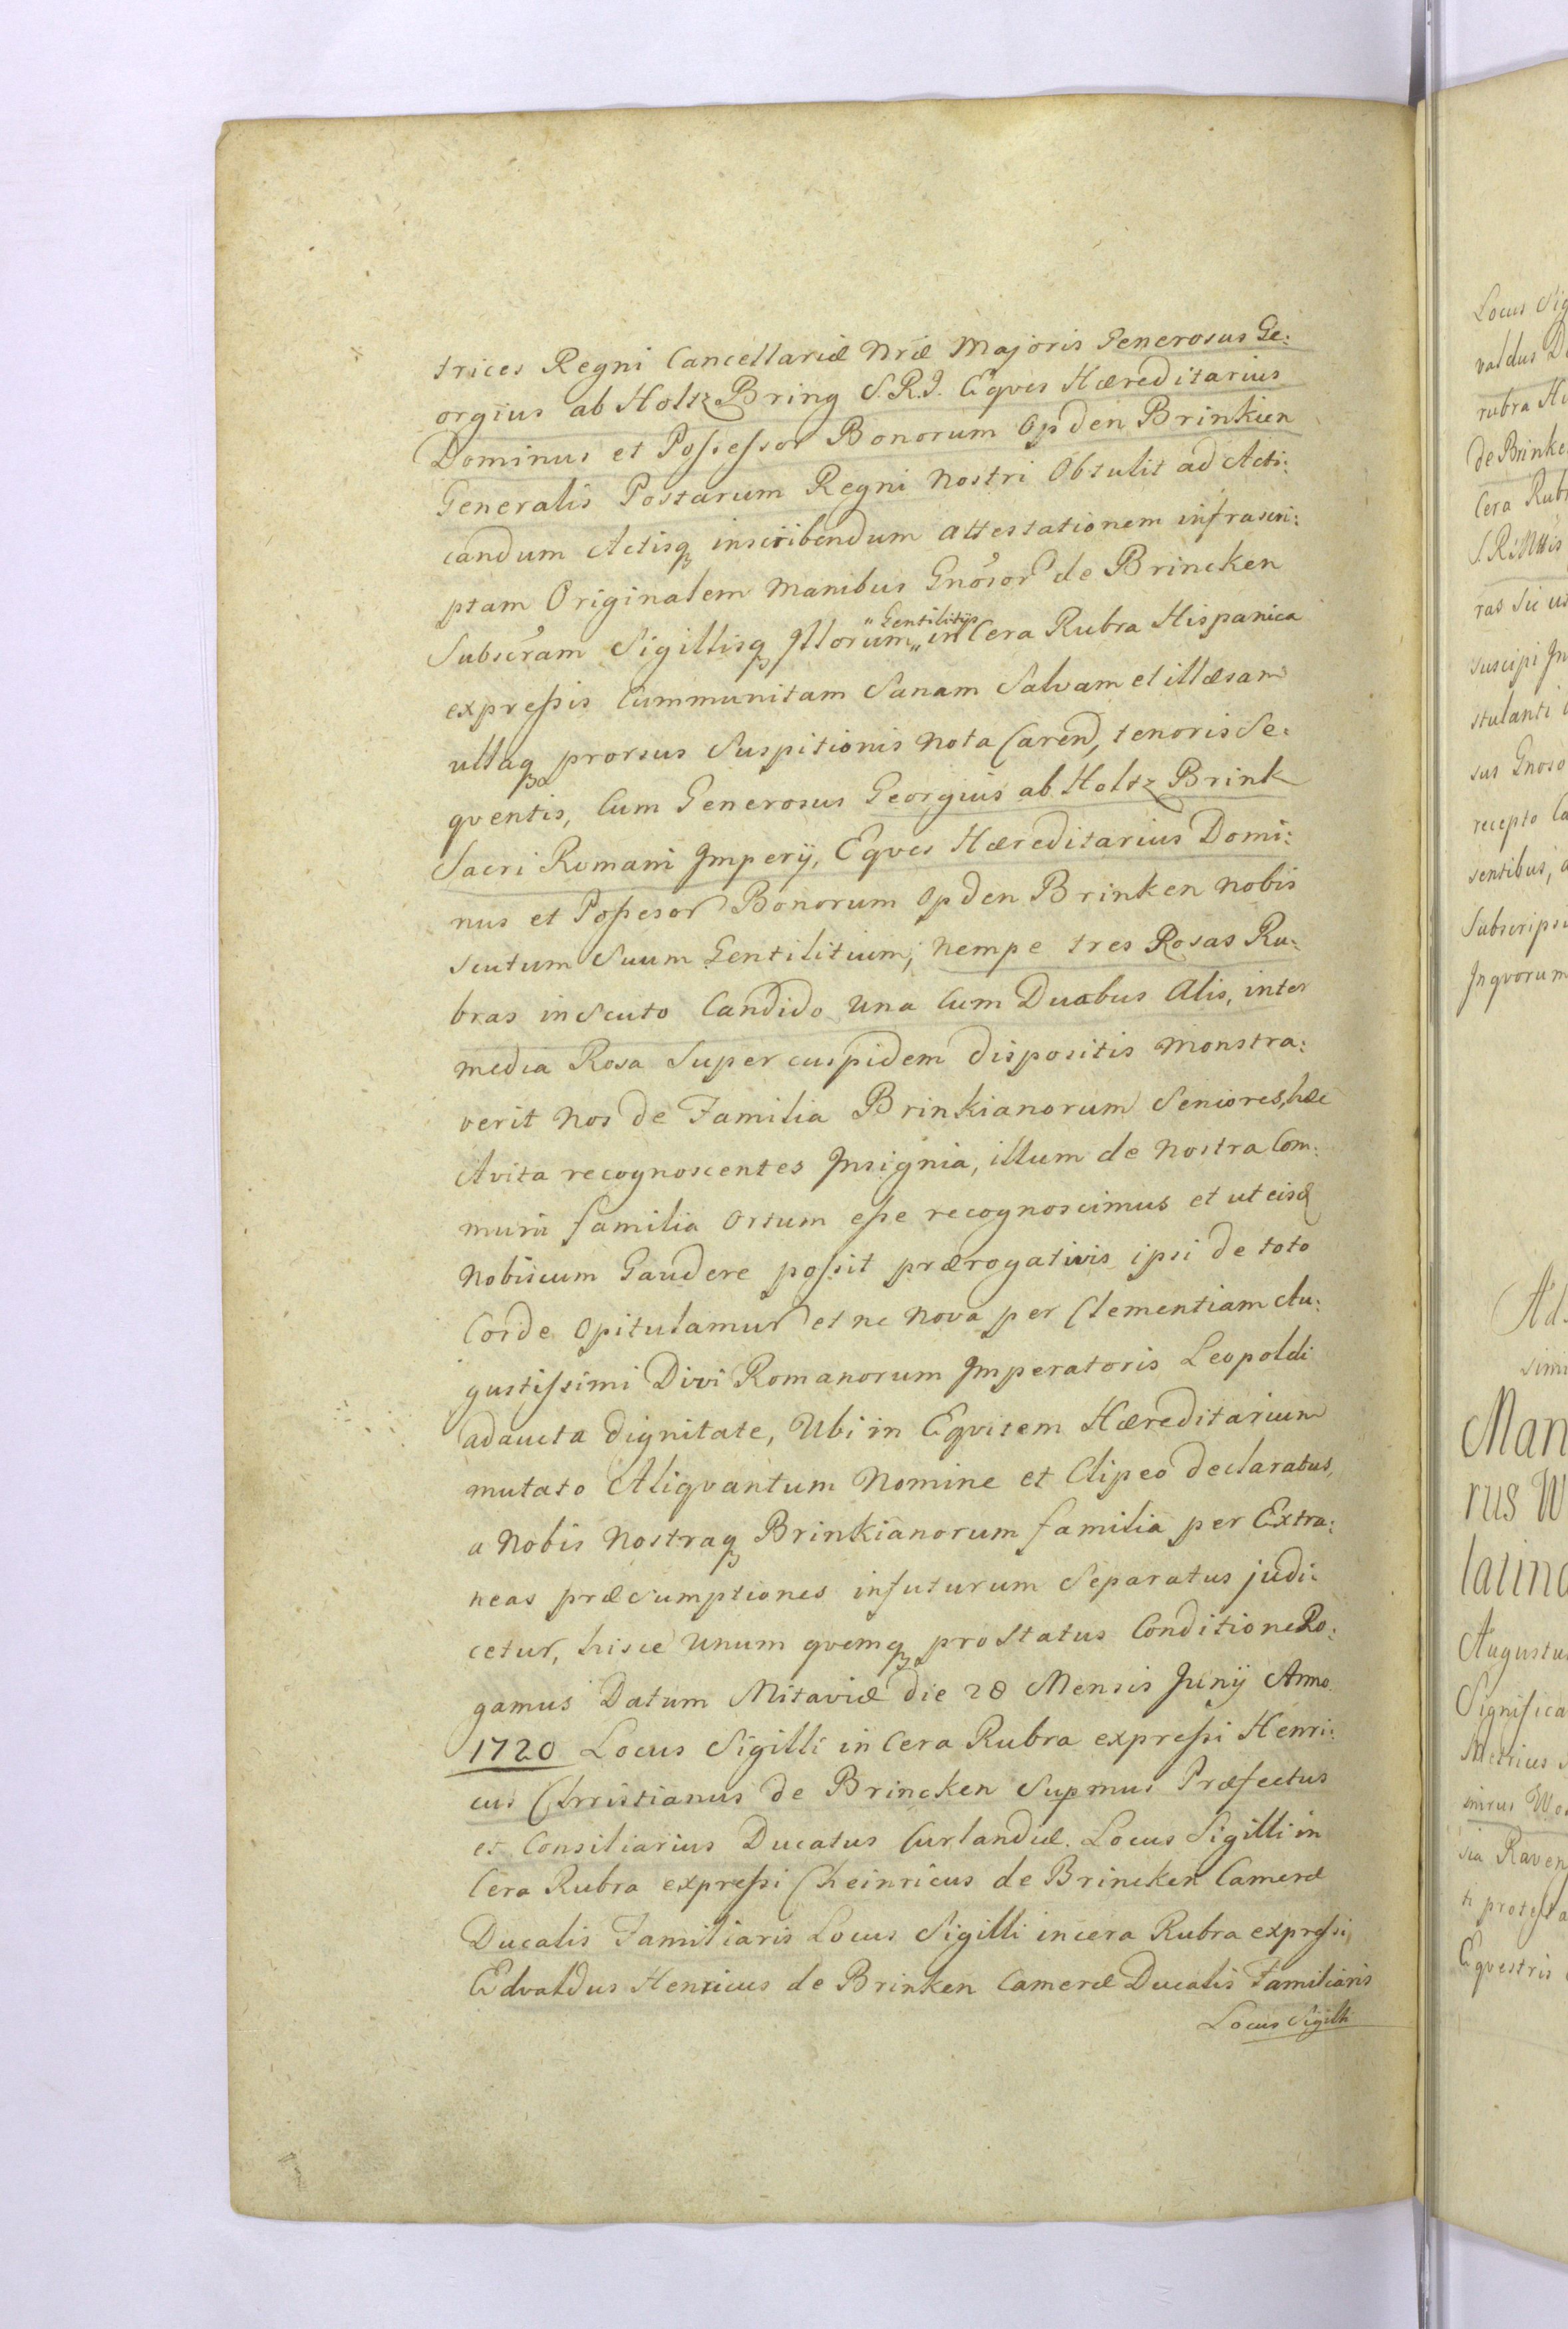 trices Regni Cancellariæ Nræ Majoris Generosus Ge:
orgius ab Holtz Bring S.R.J. Eqves Hæreditarius
Dominus et Possessor Bonorum Opden Brinkien
Generalis Postarum Regni Nostri Obtulit ad Acti:
candum Actisq inscribendum attestationem infrascri:
ptam Originalem Manibus Gnosor de Brincken
Subscram Sigillisq Illorum „ in Cera Rubra Hispanica
" Gentilitijs
expressis Cummunitam Sanam Salvam et illæsam
ullaq prorsus Suspitionis nota Caren̄, tenoris Se:
qventis, Cum Generosus Georgius ab Holtz Brink
Sacri Romani Imperij, Eqves Hæreditarius Domi:
nus et Possesor Bonorum Opden Brinken nobis
scutum Suum Gentilitium; nempe tres Rosas Ru:
bras in Scuto Candido una Cum Duabus Alis, inter
media Rosa Super cuspidem dispositis monstra:
verit Nos de Familia Brinkianorum Seniores, hæc
Avita recognoscentes Insignia, illum de nostra Com:
muni familia Ortum esse recognoscimus et ut eisd
Nobiscum Gaudere possit prærogativis ipsi de toto
Corde Opitulamur et ne nova per Clementiam Au:
gustissimi Divi Romanorum Imperatoris Leopoldi
adaucta dignitate, Ubi in Eqvitem Hæreditarium
mutato Aliqvantum Nomine et Clipeo declaratus,
a Nobis Nostraq Brinkianorum familia per Extra:
neas præsumptiones infuturum Separatus judi:
cetur, hisce Unum qvemq pro Status Conditione Ro:
gamus Datum Mitaviæ die 28 Mensis Junij Anno
1720 Locus Sigilli in Cera Rubra expressi Henri:
cus Chrristianus de Brincken Supmus Præfectus
et Consiliarius Ducatus Curlandiæ. Locus Sigilli in
Cera Rubra expressi Cheinricus de Brincken Cameræ
Ducalis Familiaris Locus Sigilli in cera Rubra expressi,
Edvaldus Henricus de Brinken Cameræ Ducalis Familiaris
Locus Sigilli
Locus Sig
valdus
rubra
de Brinke
Cera Rub
ras Sic
suscipi
stulanti
sus Gnoso
recepto
sentibus,
Subscripsi
Inqvorum
Man
rus W
latino
Augustu
Significa
Raven
Eqvestris